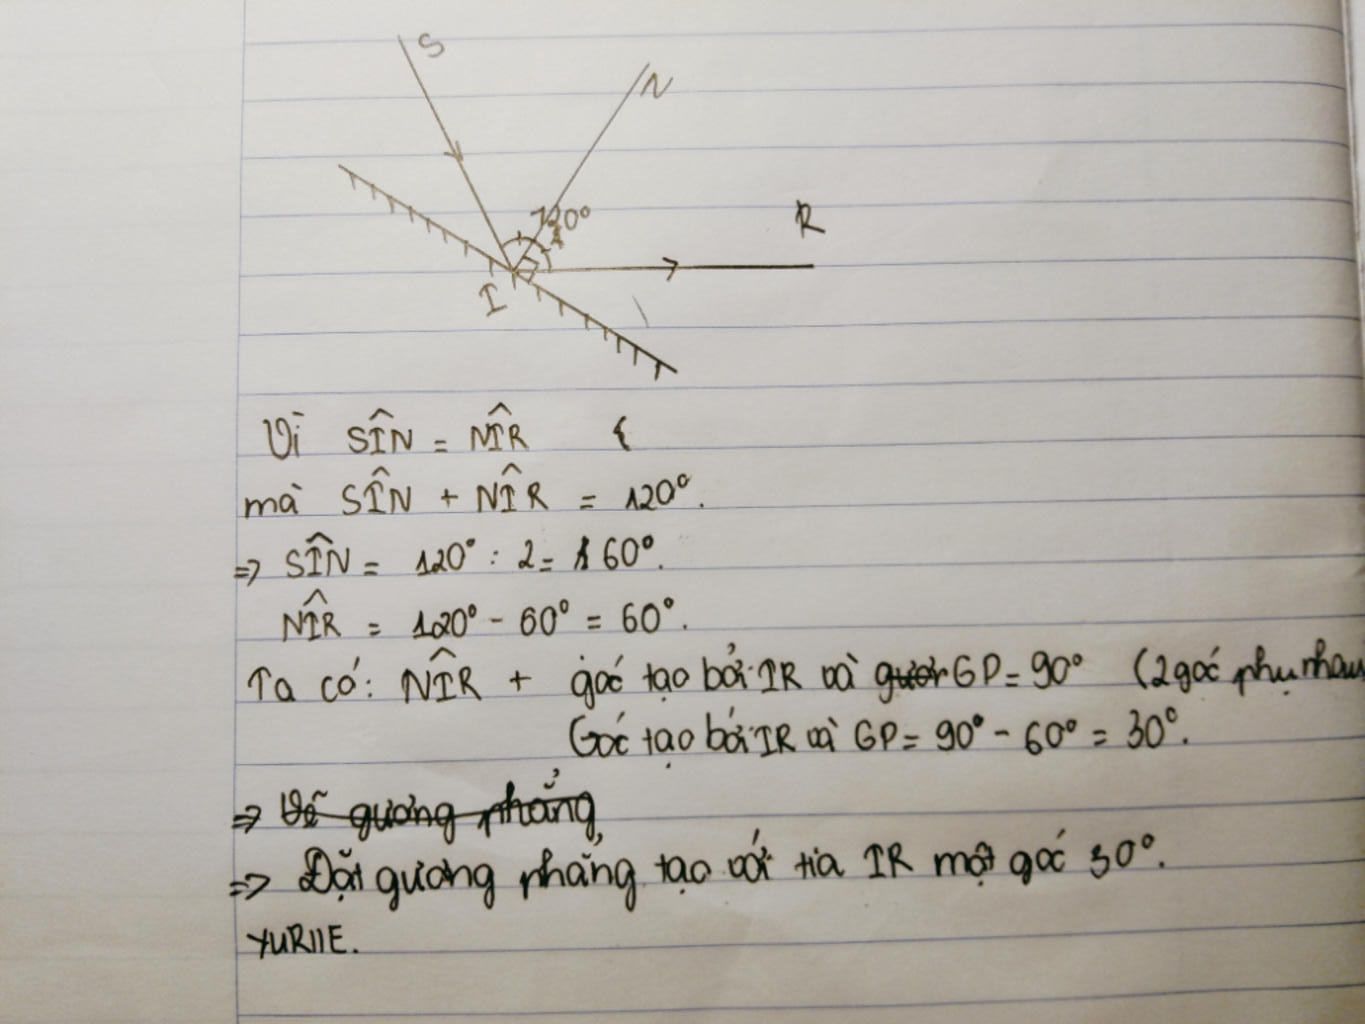 S
N
120°
R
I
Vì SÎN = NÎR {
mà SÎN + NÎR = 120°.
=> SÎN = 120° : 2 = 60°.
NÎR = 120° - 60° = 60°.
Ta có: NÎR + góc tạo bởi IR và GP = 90° (2 góc phụ nhau
Góc tạo bởi IR và GP = 90° - 60° = 30°.
=> Vẽ gương phẳng
=> Đặt gương phẳng tạo với tia IR một góc 30°.
YURIIE.